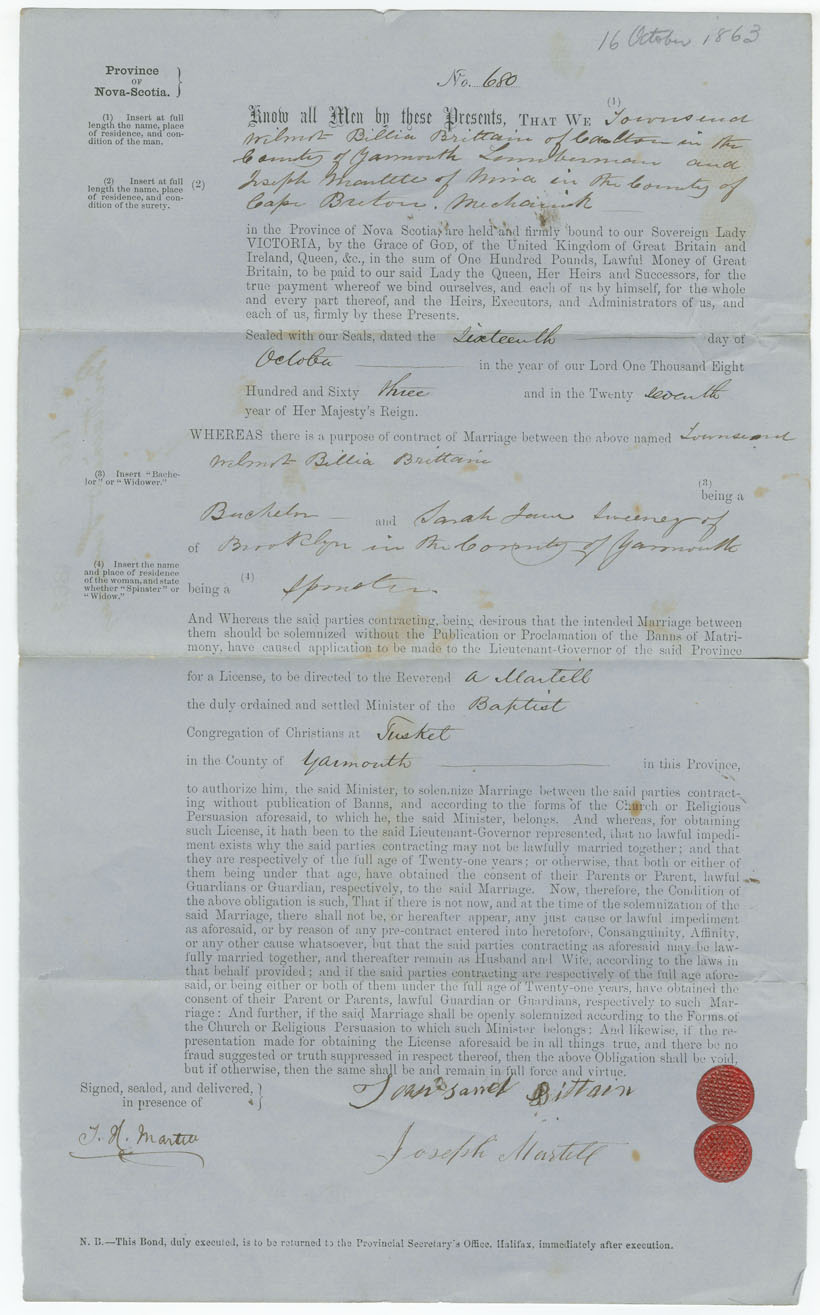 16 October 1863
Province
OF
Nova-Scotia.
No. 680
(1) Insert at full
length the name, place
of residence, and con-
dition of the man.
(1)
Know all Men by these Presents, THAT WE Townsend
Wilmot Billia Brittain of Carlton in the
County of Yarmouth Lumberman and
(2) Insert at full
length the name, place
of residence, and con-
dition of the surety.
(2)
Joseph Martell of Mira in the County of
Cape Breton. Mechanick
in the Province of Nova Scotia, are held and firmly bound to our Sovereign Lady
VICTORIA, by the Grace of GOD, of the United Kingdom of Great Britain and
Ireland, Queen, &c., in the sum of One Hundred Pounds, Lawful Money of Great
Britain, to be paid to our said Lady the Queen, Her Heirs and Successors, for the
true payment whereof we bind ourselves, and each of us by himself, for the whole
and every part thereof, and the Heirs, Executors, and Administrators of us, and
each of us, firmly by these Presents.
Sealed with our Seals, dated the Sixteenth day of
October in the year of our Lord One Thousand Eight
Hundred and Sixty three and in the Twenty seventh
year of Her Majesty's Reign.
WHEREAS there is a purpose of contract of Marriage between the above named Townsend
Wilmot Billia Brittain
(3) Insert "Bache-
lor" or "Widower."
(3)
being a
Bachelor and Sarah Jane Sweeney of
of Brooklyn in the County of Yarmouth
(4) Insert the name
and place of residence
of the woman, and state
whether "Spinster" or
"Widow."
(4)
being a Spinster.
And Whereas the said parties contracting, being desirous that the intended Marriage between
them should be solemnized without the Publication or Proclamation of the Banns of Matri-
mony, have caused application to be made to the Lieutenant-Governor of the said Province
for a License, to be directed to the Reverend A Martell
the duly ordained and settled Minister of the Baptist
Congregation of Christians at Tusket
in the County of Yarmouth in this Province,
to authorize him, the said Minister, to solemnize Marriage between the said parties contract-
ing without publication of Banns, and according to the forms of the Church or Religious
Persuasion aforesaid, to which he, the said Minister, belongs. And whereas, for obtaining
such License, it hath been to the said Lieutenant-Governor represented, that no lawful impedi-
ment exists why the said parties contracting may not be lawfully married together; and that
they are respectively of the full age of Twenty-one years; or otherwise, that both or either of
them being under that age, have obtained the consent of their Parents or Parent, lawful
Guardians or Guardian, respectively, to the said Marriage. Now, therefore, the Condition of
the above obligation is such, That if there is not now, and at the time of the solemnization of the
said Marriage, there shall not be, or hereafter appear, any just cause or lawful impediment
as aforesaid, or by reason of any pre-contract entered into heretofore, Consanguinity, Affinity,
or any other cause whatsoever, but that the said parties contracting as aforesaid may be law-
fully married together, and thereafter remain as Husband and Wife, according to the laws in
that behalf provided; and if the said parties contracting are respectively of the full age afore-
said, or being either or both of them under the full age of Twenty-one years, have obtained the
consent of their Parent or Parents, lawful Guardian or Guardians, respectively to such Mar-
riage: And further, if the said Marriage shall be openly solemnized according to the Forms of
the Church or Religious Persuasion to which such Minister belongs: And likewise, if the re-
presentation made for obtaining the License aforesaid be in all things true, and there be no
fraud suggested or truth suppressed in respect thereof, then the above Obligation shall be void,
but if otherwise, then the same shall be and remain in full force and virtue.
Signed, sealed, and delivered,
in presence of
Townsand Brittain
Joseph Martell
N. B.—This Bond, duly executed, is to be returned to the Provincial Secretary's Office, Halifax, immediately after execution.